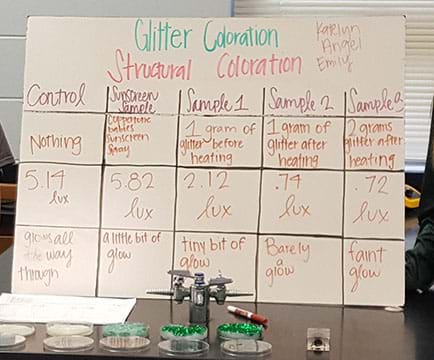 Glitter Coloration
Structural Coloration
Katelyn
Angel
Emily
Control
Sunscreen
Sample
Sample 1
Sample 2
Sample 3
Nothing
Coppatone
babies
sunscreen
spray
1 gram of
glitter before
heating
1 gram of
glitter after
heating
2 grams
glitter after
heating
5.14
lux
5.82
lux
2.12
lux
.74
lux
.72
lux
glows all
the way
through
a little bit of
glow
tiny bit of
glow
Barely
a
glow
faint
glow